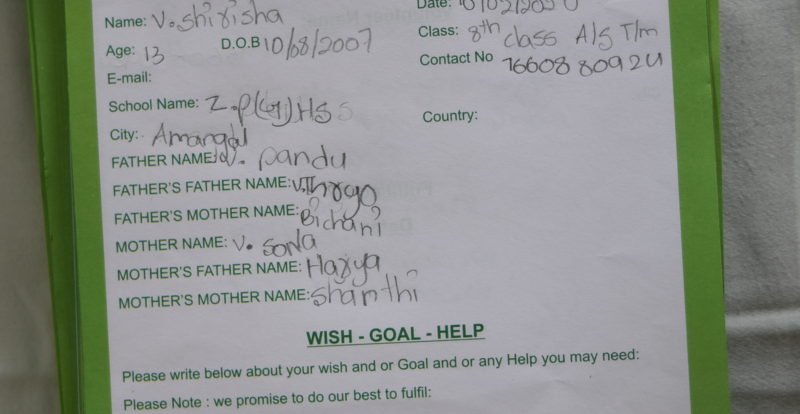 Name: V. shirisha Date: 10/02/2020
Age: 13 D.O.B 10/08/2007 Class: 8th class A/S T/m
E-mail: Contact No 7660880924
School Name: Z.P(G)HS S
City: Amangal Country:
FATHER NAME: V. pandu
FATHER'S FATHER NAME: V.
FATHER'S MOTHER NAME: Bichani
MOTHER NAME: V. Sona
MOTHER'S FATHER NAME: Harya
MOTHER'S MOTHER NAME: Shanthi
WISH - GOAL - HELP
Please write below about your wish and or Goal and or any Help you may need:
Please Note : we promise to do our best to fulfil: